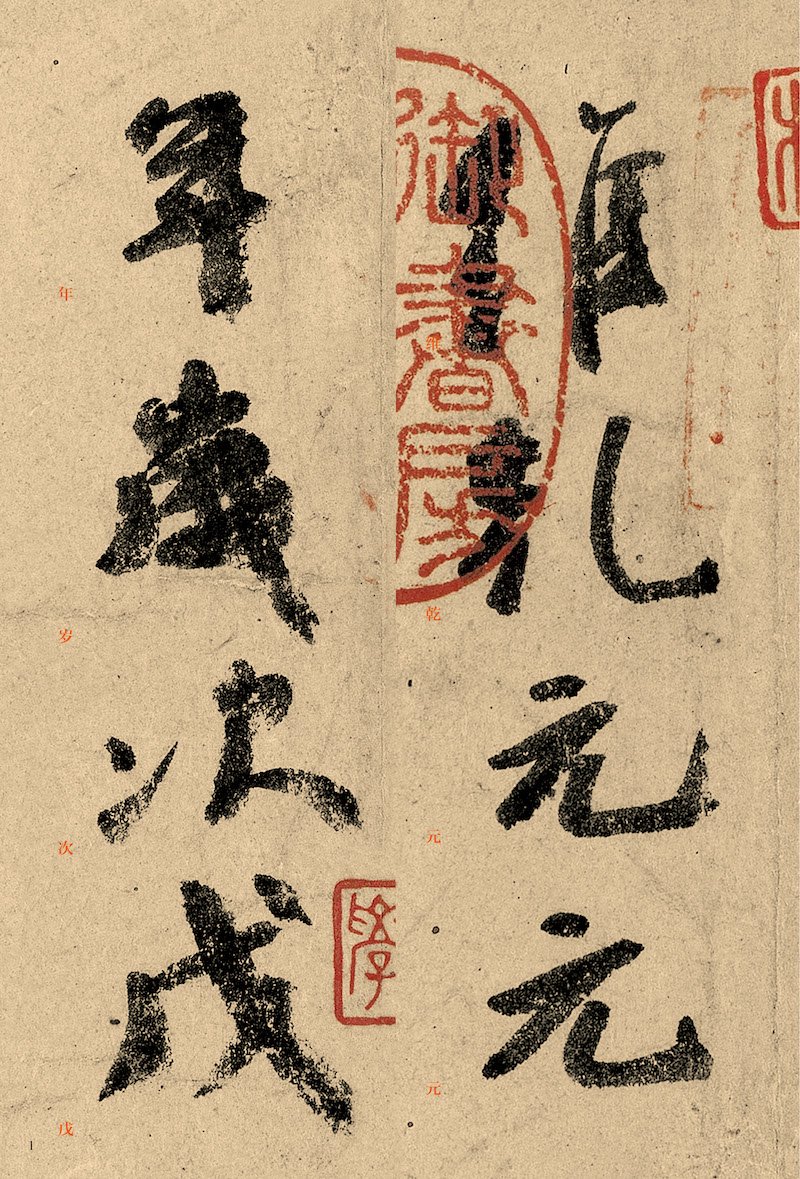 維乾元元
年歲次戊
御書房
乾
元
元
年
岁
次
戊
1